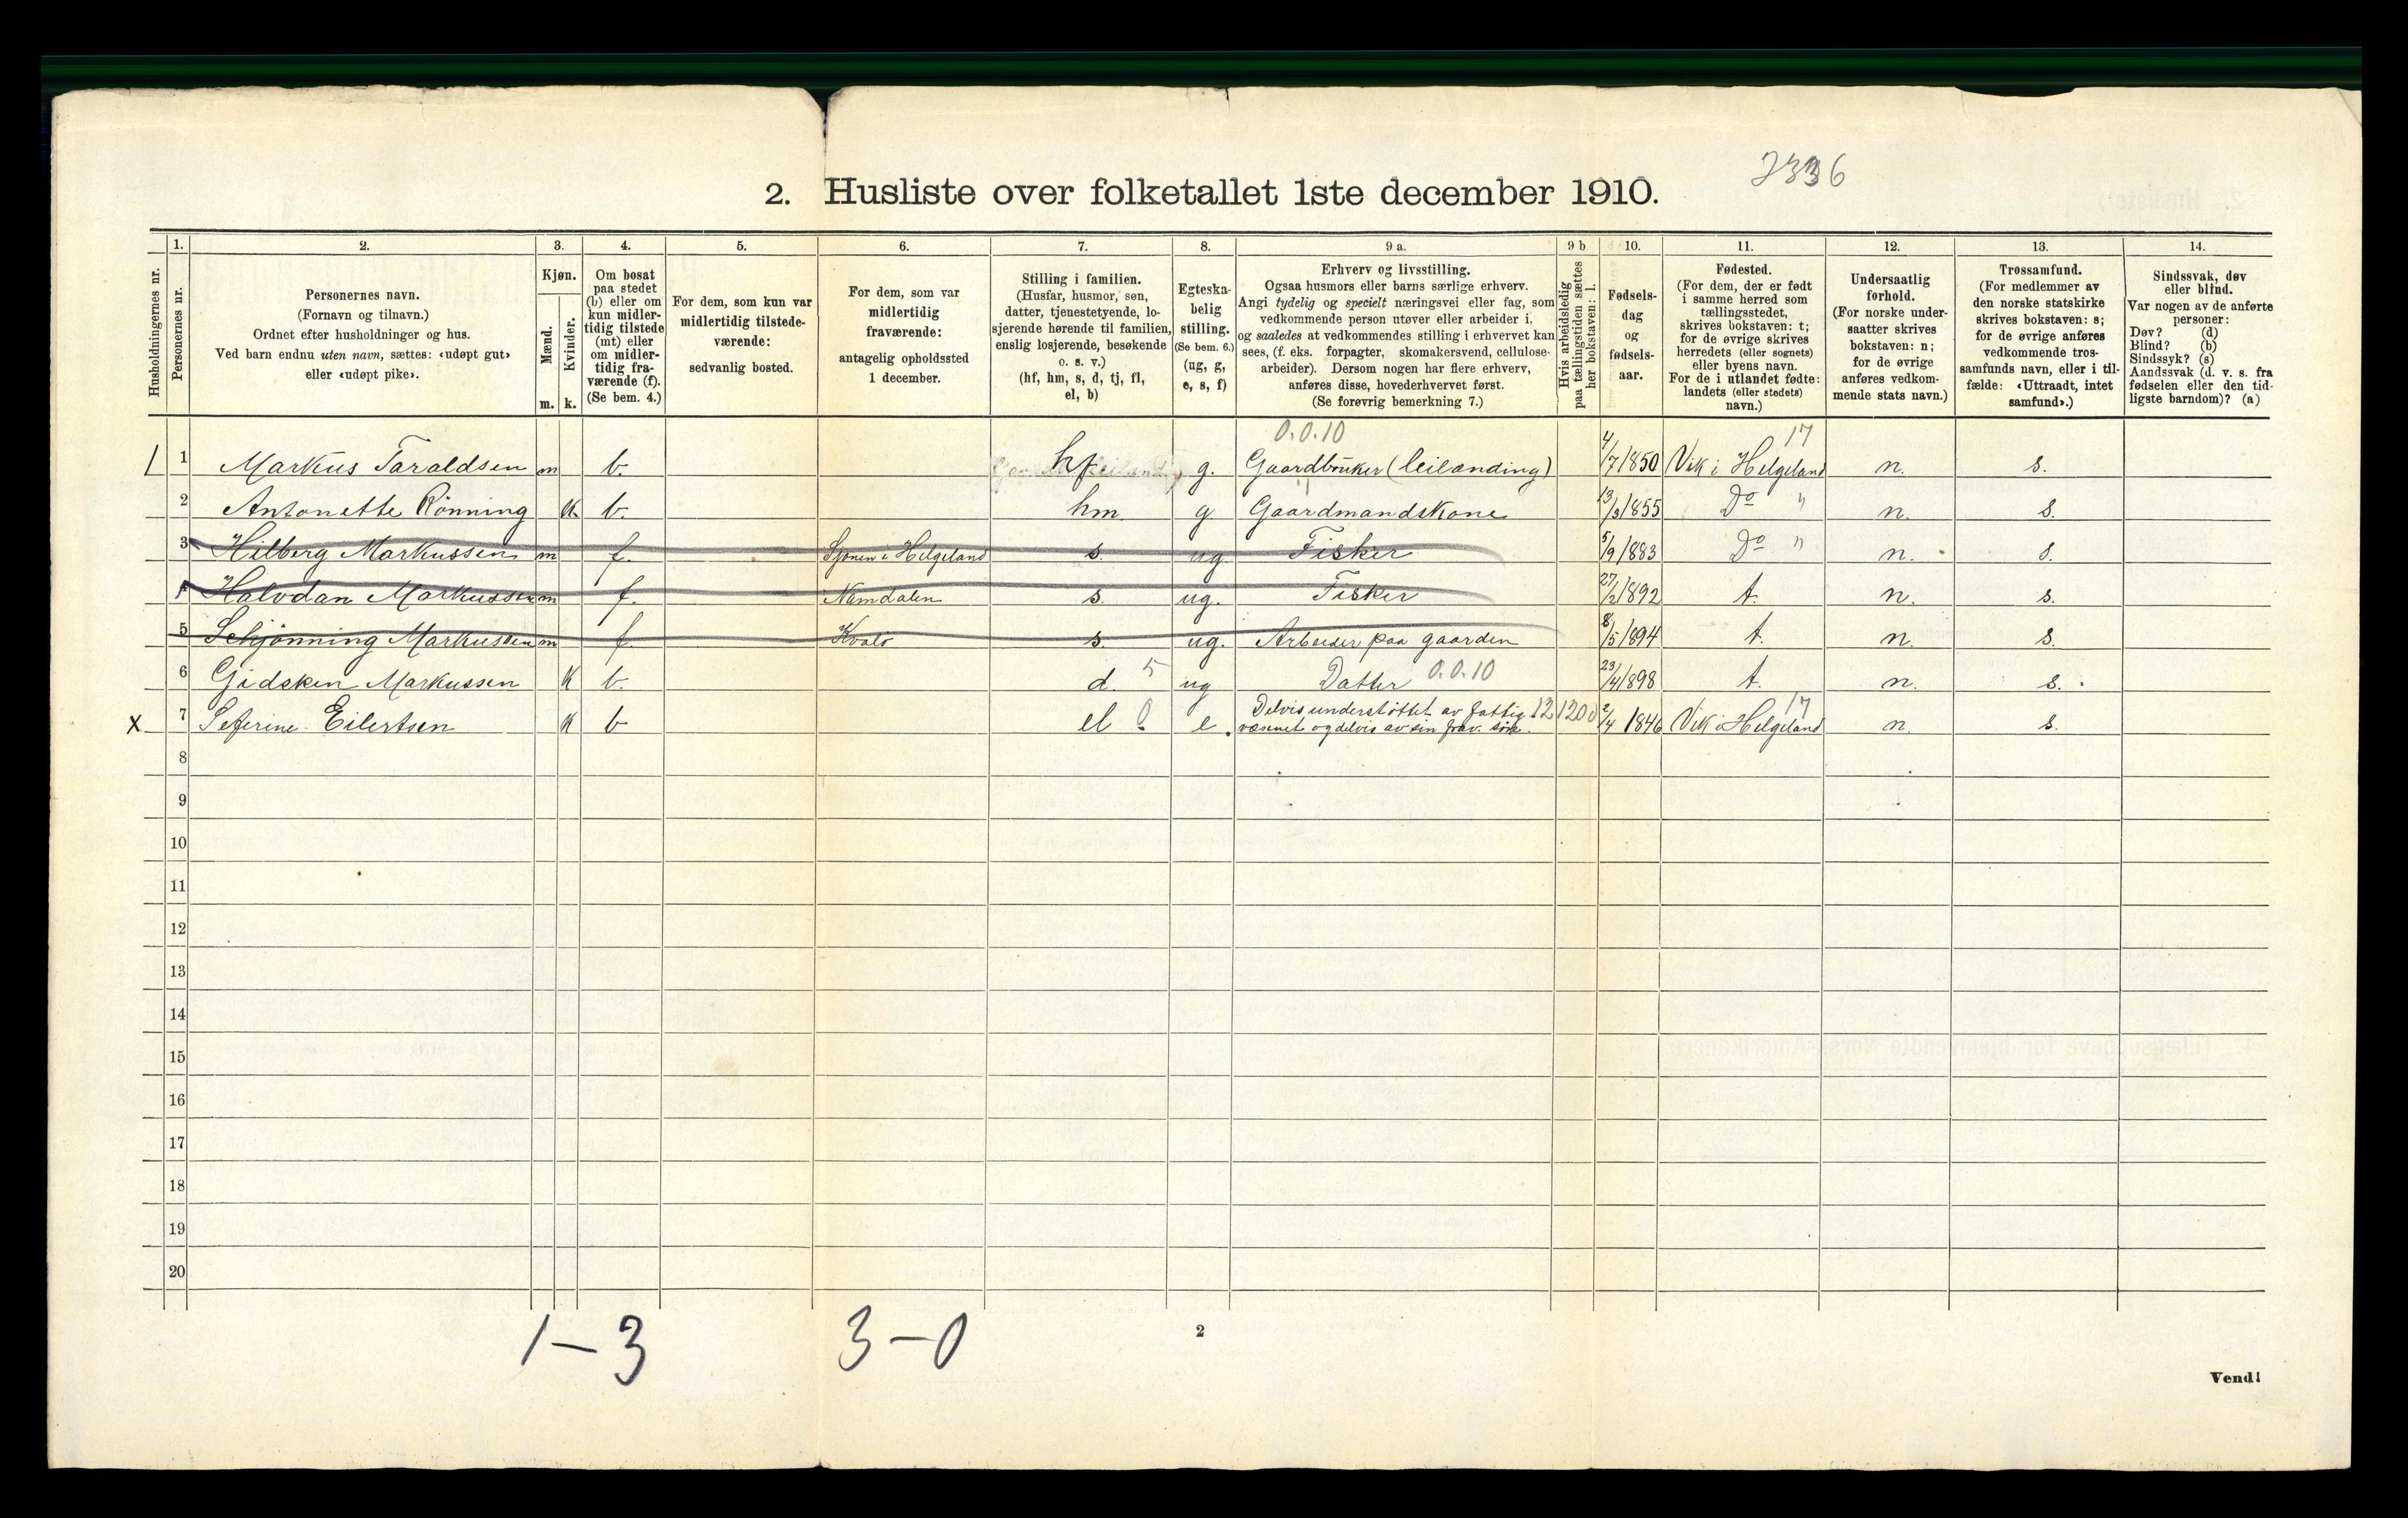 7336
2. Husliste over folketallet 1ste december 1910.
1. 2. 3. 4. 5. 6. 7. 8. 9 a. 9 b 10. 11. 12. 13. 14.
Husholdningernes nr.
Personernes nr.
Personernes navn.
(Fornavn og tilnavn.)
Ordnet efter husholdninger og hus.
Ved barn endnu uten navn, sættes: «udøpt gut»
eller «udøpt pike».
Kjøn.
Mænd.
Kvinder.
m. k.
Om bosat
paa stedet
(b) eller om
kun midler-
tidig tilstede
(mt) eller
om midler-
tidig fra-
værende (f).
(Se bem. 4.)
For dem, som kun var
midlertidig tilstede-
værende:
sedvanlig bosted.
For dem, som var
midlertidig
fraværende:
antagelig opholdssted
1 december.
Stilling i familien.
(Husfar, husmor, søn,
datter, tjenestetyende, lo-
sjerende hørende til familien,
enslig losjerende, besøkende
o. s. v.)
(hf, hm, s, d, tj, fl,
el, b)
Egteska-
belig
stilling.
(Se bem. 6.)
(ug, g,
e, s, f)
Erhverv og livsstilling.
Ogsaa husmors eller barns særlige erhverv.
Angi tydelig og specielt næringsvei eller fag, som
vedkommende person utøver eller arbeider i,
og saaledes at vedkommendes stilling i erhvervet kan
sees, (f. eks. forpagter, skomakersvend, cellulose-
arbeider). Dersom nogen har flere erhverv,
anføres disse, hovederhvervet først.
(Se forøvrig bemerkning 7.)
Hvis arbeidsledig
paa tællingstiden sættes
her bokstaven: l.
Fødsels-
dag
og
fødsels-
aar.
Fødested.
(For dem, der er født
i samme herred som
tællingsstedet,
skrives bokstaven: t;
for de øvrige skrives
herredets (eller sognets)
eller byens navn.
For de i utlandet fødte:
landets (eller stedets)
navn.)
Undersaatlig
forhold.
(For norske under-
saatter skrives
bokstaven: n;
for de øvrige
anføres vedkom-
mende stats navn.)
Trossamfund.
(For medlemmer av
den norske statskirke
skrives bokstaven: s;
for de øvrige anføres
vedkommende tros-
samfunds navn, eller i til-
fælde: «Uttraadt, intet
samfund».)
Sindssvak, døv
eller blind.
Var nogen av de anførte
personer:
Døv? (d)
Blind? (b)
Sindssyk? (s)
Aandssvak (d. v. s. fra
fødselen eller den tid-
ligste barndom)? (a)
0.0.10 17
1 1 Markus Taraldsen m b. hf g. Gaardbruker (leilænding) 4/7 1850 Vik i Helgeland n. s.
2 Antonette Rönning k b. hm. g. Gaardmandskone 13/3 1855 Do " n. s.
3 Hilberg Markussen m f. Sjonen i Helgeland s. ug. Fisker 5/9 1883 Do " n. s.
4 Halvdan Markussen m f. Namdalen s. ug. Fisker 27/2 1892 t. n. s.
5 Schjönning Markussen m f. Kvalö s. ug. Arbeider paa gaarden 8/5 1894 t. n. s.
6 Gidsken Markussen k b. d. 5 ug Datter 0.0.10 23/4 1898 t. n. s.
x 7 Seferine Eilertsen k b el 0 e. Delvis understöttet av fattig- 12 1200 2/4 1846 Vik i Helgeland 17 n. s.
væsnet og delvis av sin frav. sön.
8
9
10
11
12
13
14
15
16
17
18
19
20
1 – 3 3 – 0
2
Vend!